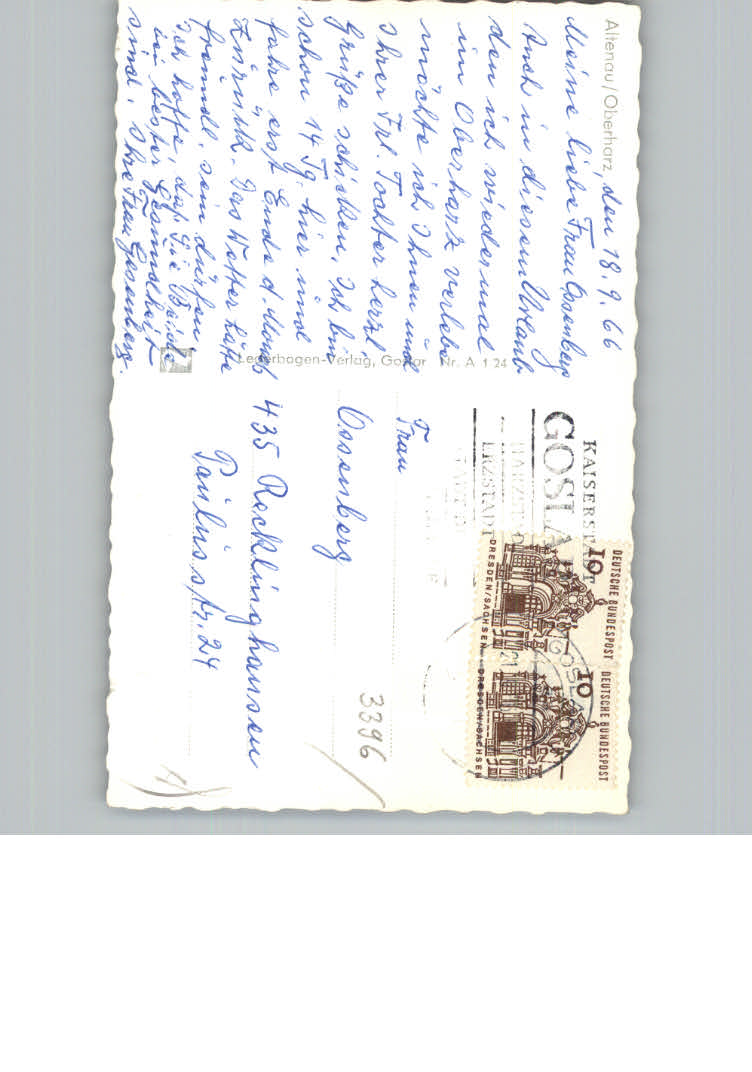 Altenau/Oberharz, den 18.9.66
Meine liebe Frau Ossenberg
Auch in diesem Urlaub,
den ich wieder mal
im Oberharz verlebe
möchte ich Ihnen und
Ihrer Frl. Tochter herzl
Grüße schicken. Ich bin
schon 14 Tg. hier und
fahre erst Ende d. Monats
zurück. Das Wetter hätte
freundl. sein dürfen.
Ich hoffe, daß Sie Beide
in bester Gesundheit
sind. Ihre Frau
Lederbogen-Verlag, Goslar Nr. A 1 24
KAISERSTADT
GOSLAR
ERZSTADT
DEUTSCHE BUNDESPOST
10
DRESDEN/SACHSEN
DEUTSCHE BUNDESPOST
10
DRESDEN/SACHSEN
GOSLAR
Frau
Ossenberg
435 Recklinghausen
Paulusstr. 24
3396